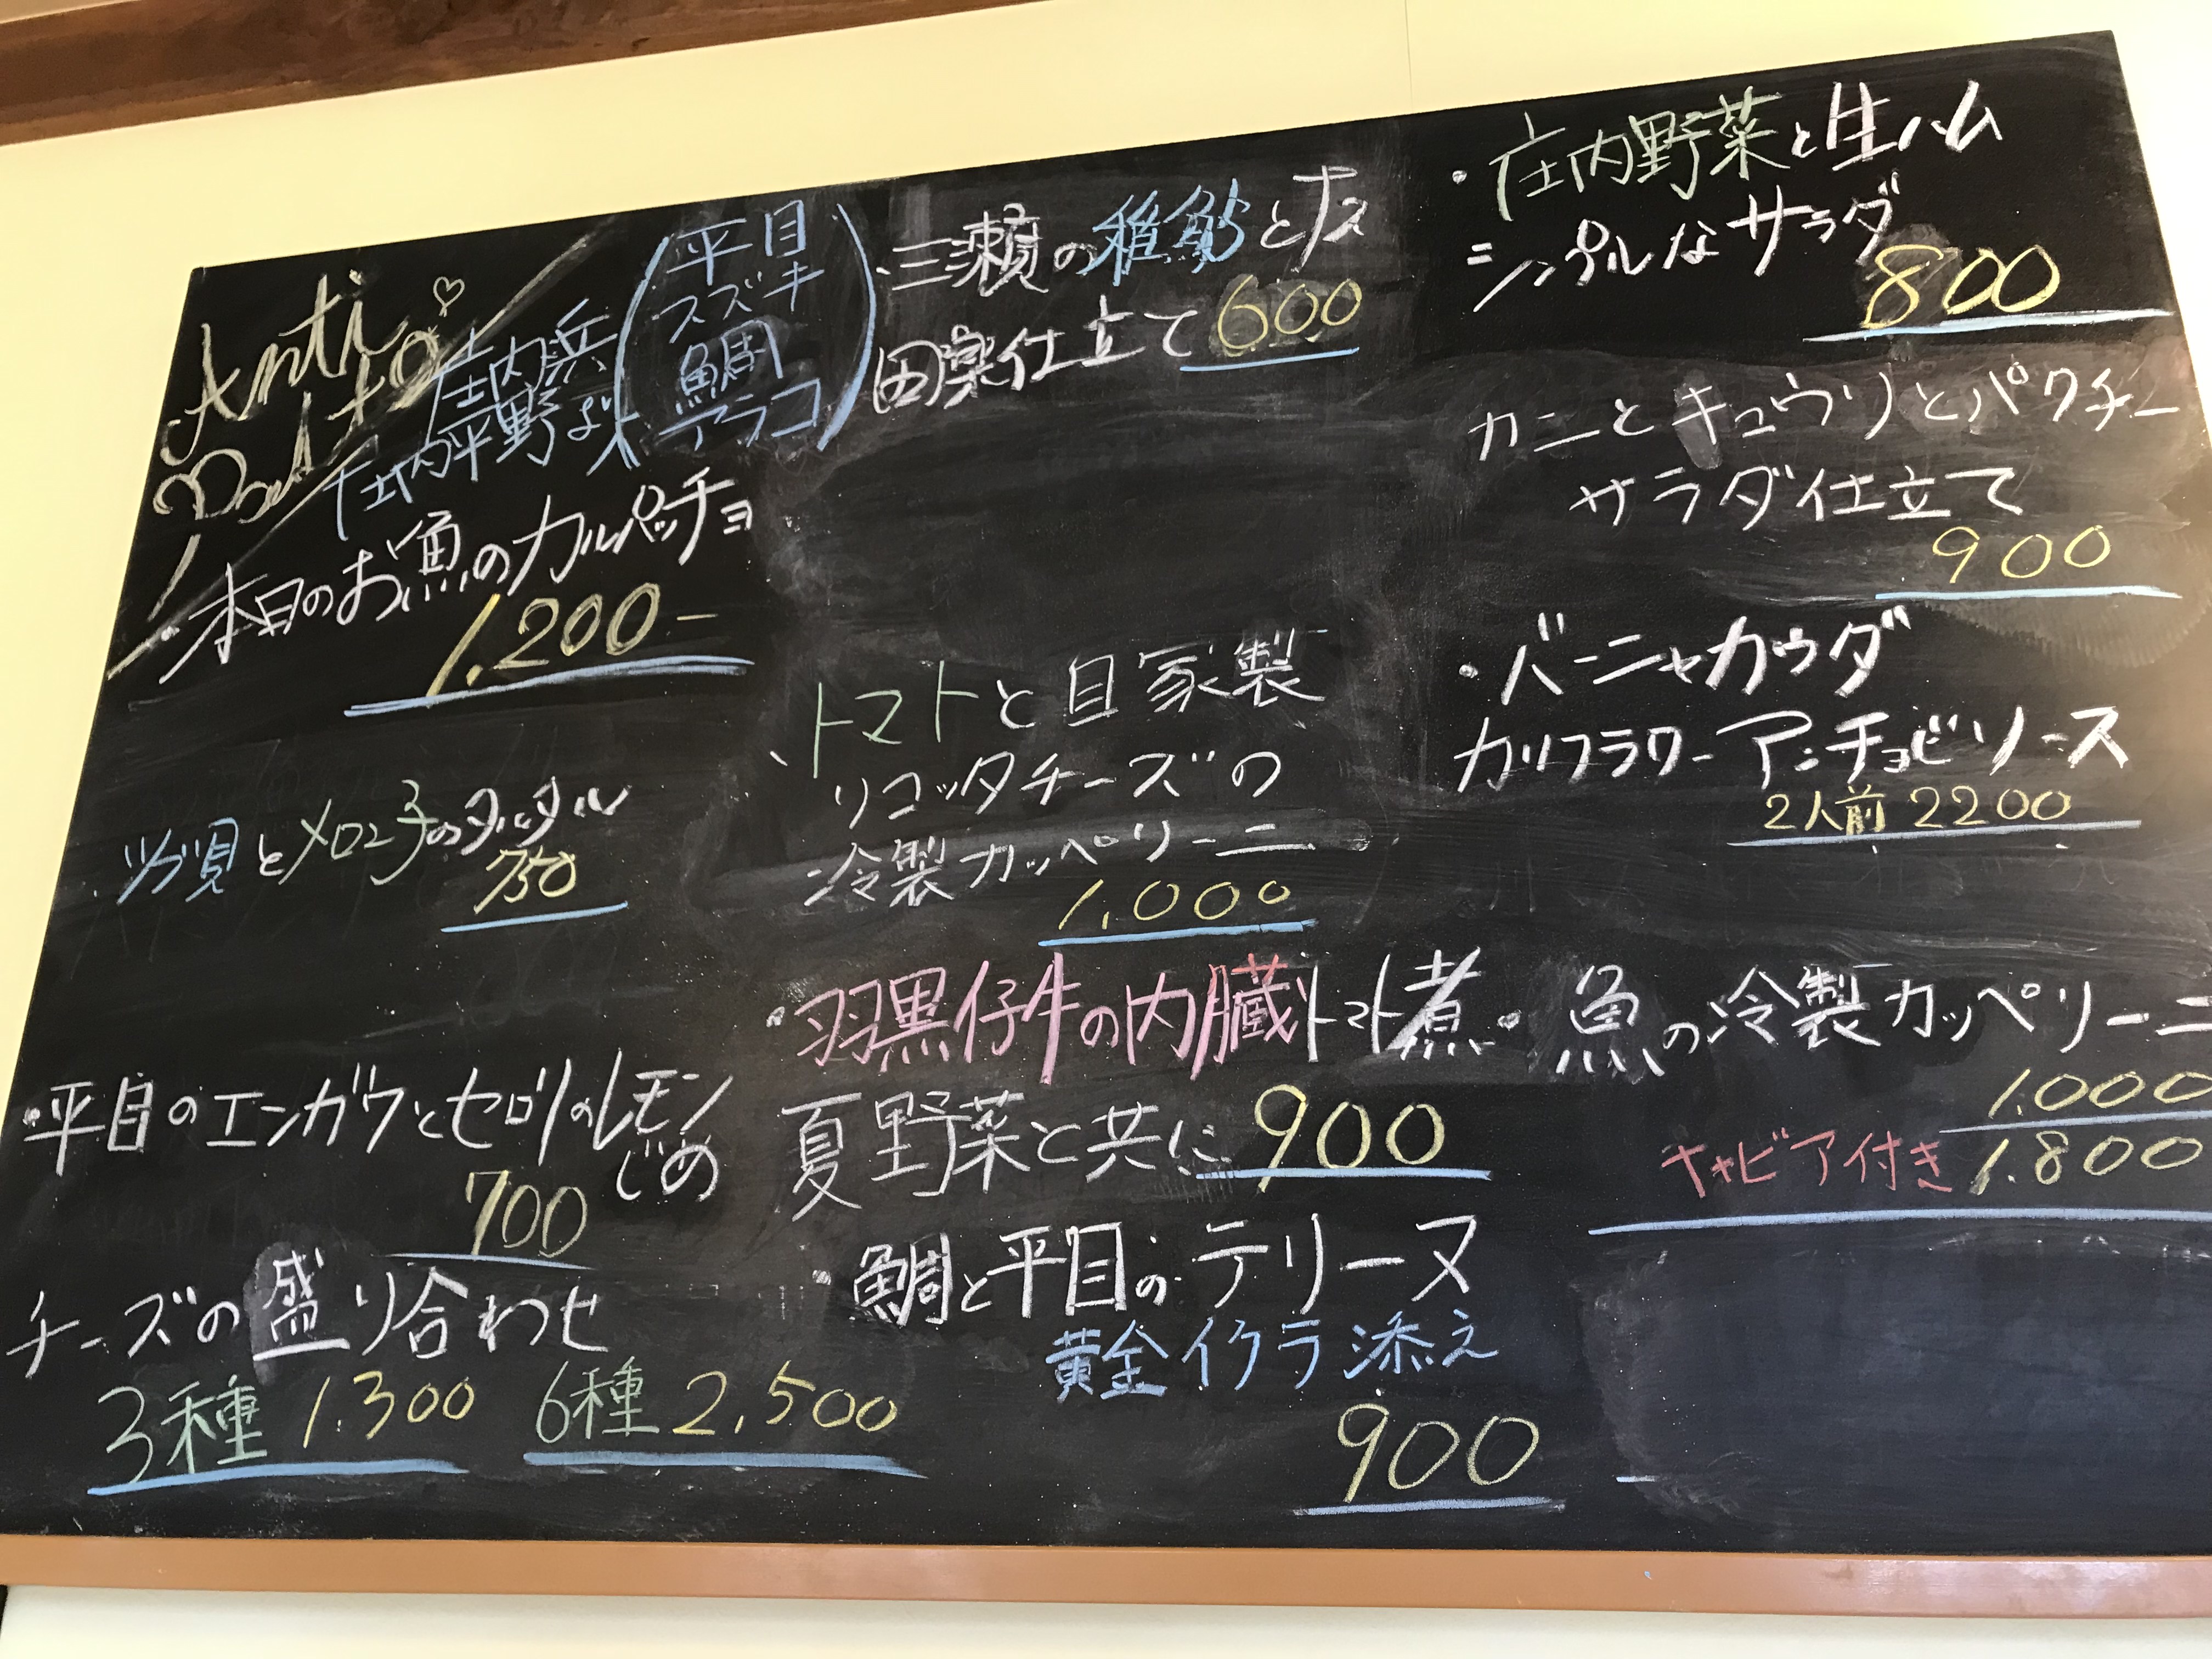 Anti
Pasto
庄内浜
庄内平野より
平目
スズキ
鯛
アラコ
・本日のお魚のカルパッチョ
1.200-
ツブ貝とメロン子のタルタル
750
・平目のエンガワとセロリのレモン
じめ
700
チーズの盛り合わせ
3種 1.300 6種 2,500
・三瀬の稚鮎とナス
田楽仕立て 600
、トマトと自家製
リコッタチーズの
冷製カッペリーニ
1,000
・羽黒仔牛の内臓トマト煮
夏野菜と共に 900
・鯛と平目のテリーヌ
黄金イクラ添え
900
・庄内野菜と生ハム
シンプルなサラダ
800
カニとキュウリとパクチー
サラダ仕立て
900
・バーニャカウダ
カリフラワーアンチョビソース
2人前 2200
・魚の冷製カッペリーニ
1.000
キャビア付き 1.800